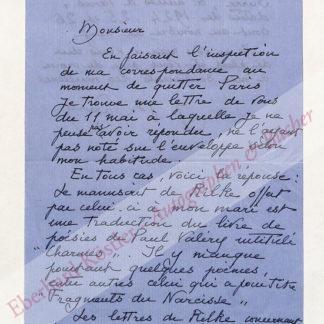 Monsieur
En faisant l'inspection
de ma correspondance au
moment de quitter Paris
je trouve une lettre de vous
du 11 mai à laquelle je ne
pense pas avoir répondu, ne l'ayant
pas noté sur l'enveloppe selon
mon habitude.
En tous cas, voici la réponse:
Le manuscrit de Rilke offert
par celui-ci à mon mari est
une traduction du livre de
poésies de Paul Valéry intitulé
"Charmes". Il y manque
pourtant quelques poèmes,
entre autres celui qui a pour titre
"Fragments du Narcisse"
Les lettres de Rilke concernant
Eberhard Köstler Autographen & Bücher